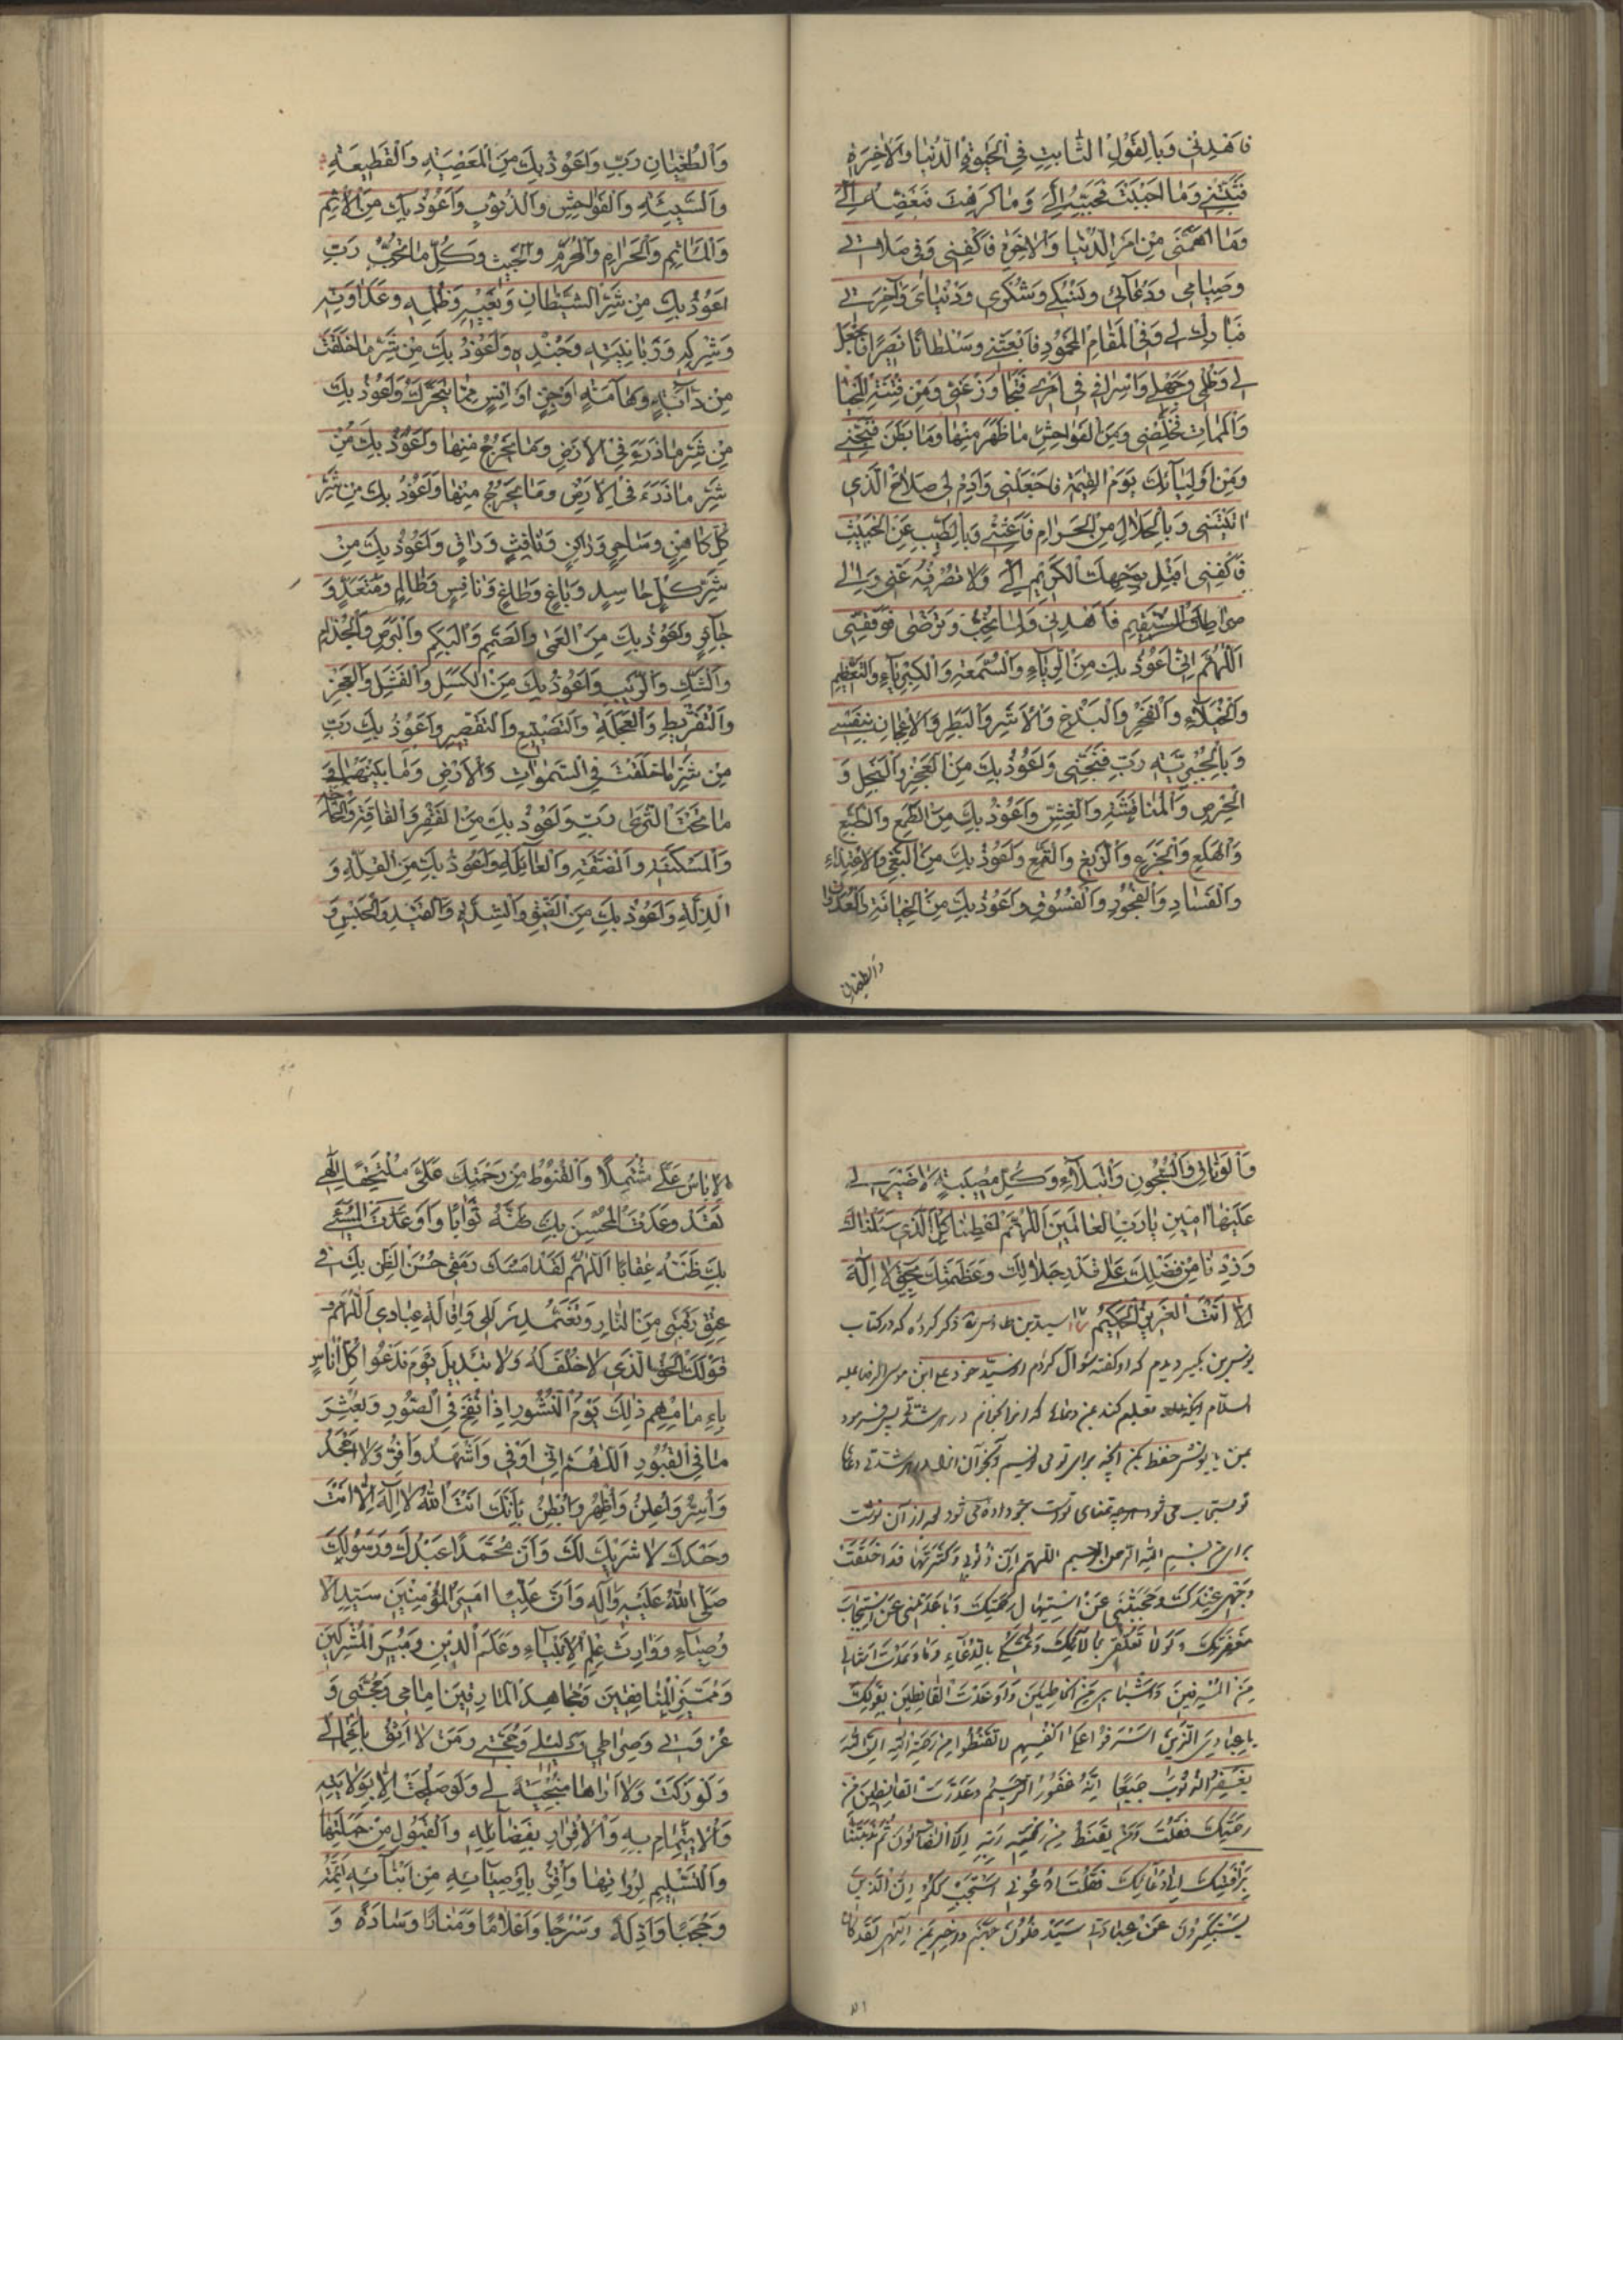 فَاهْدِنِي وَبِالْقَوْلِ الثَّابِتِ فِي الْحَيٰوةِ الدُّنْيَا وَالْاٰخِرَةِ
فَثَبِّتْنِي وَمَا اَحْبَبْتَ فَحَبِّبْهُ اِلَيَّ وَمَا كَرِهْتَ فَبَغِّضْهُ اِلَيَّ
وَمَا اَهَمَّنِي مِنْ اَمْرِ الدُّنْيَا وَالْاٰخِرَةِ فَاكْفِنِي وَفِي صَلَاتِي
وَصِيَامِي وَدُعَائِي وَنُسُكِي وَشُكْرِي وَدُنْيَايَ وَآخِرَتِي
فَبَارِكْ لِي وَفِي الْمَقَامِ الْمَحْمُودِ فَابْعَثْنِي وَسُلْطَانًا نَصِيرًا فَاجْعَلْ
لِي وَظُلْمِي وَجَهْلِي وَاِسْرَافِي فِي اَمْرِي فَتَجَاوَزْ عَنِّي وَمِنْ فِتْنَةِ الْمَحْيَا
وَالْمَمَاتِ فَخَلِّصْنِي وَمِنَ الْفَوَاحِشِ مَا ظَهَرَ مِنْهَا وَمَا بَطَنَ فَنَجِّنِي
وَمِنْ اَوْلِيَائِكَ يَوْمَ الْقِيٰمَةِ فَاجْعَلْنِي وَاَدِمْ لِي صَلَاحَ الَّذِي
اٰتَيْتَنِي وَبِالْحَلَالِ مِنَ الْحَرَامِ فَاَغْنِنِي وَبِالطَّيِّبِ عَنِ الْخَبِيثِ
فَاكْفِنِي اَقْبِلْ بِوَجْهِكَ الْكَرِيمِ اِلَيَّ وَلَا تَصْرِفْهُ عَنِّي وَاِلٰى
صِرَاطِكَ الْمُسْتَقِيمِ فَاهْدِنِي وَلِمَا تُحِبُّ وَتَرْضٰى فَوَفِّقْنِي
اَللّٰهُمَّ اِنِّي اَعُوذُ بِكَ مِنَ الرِّيَاءِ وَالسُّمْعَةِ وَالْكِبْرِيَاءِ وَالتَّعَظُّمِ
وَالْخُيَلَاءِ وَالْفَخْرِ وَالْبَذَخِ وَالْاَشَرِ وَالْبَطَرِ وَالْاِعْجَابِ بِنَفْسِي
وَالْجَبْرِيَّةِ رَبِّ فَنَجِّنِي وَاَعُوذُ بِكَ مِنَ الْعَجْزِ وَالْبُخْلِ وَ
الْحِرْصِ وَالْمُنَافَسَةِ وَالْغِشِّ وَاَعُوذُ بِكَ مِنَ الطَّمَعِ وَالطَّبَعِ
وَالْهَلَعِ وَالْجَزَعِ وَالزَّيْغِ وَالْقَمْعِ وَاَعُوذُ بِكَ مِنَ الْبَغْيِ وَالْاِعْتِدَاءِ
وَالْفَسَادِ وَالْفُجُورِ وَالْفُسُوقِ وَاَعُوذُ بِكَ مِنَ الْخِيَانَةِ وَالْعُدْوَانِ
وَالطغیان
وَالطُّغْيَانِ رَبِّ وَاَعُوذُ بِكَ مِنَ الْمَعْصِيَةِ وَالْقَطِيعَةِ
وَالسَّيِّئَةِ وَالْفَوَاحِشِ وَالذُّنُوبِ وَاَعُوذُ بِكَ مِنَ الْاِثْمِ
وَالْمَاْثَمِ وَالْحَرَامِ وَالْمُحَرَّمِ وَالْخَبِيثِ وَكُلِّ مَا لَا تُحِبُّ رَبِّ
اَعُوذُ بِكَ مِنْ شَرِّ الشَّيْطَانِ وَبَغْيِهِ وَظُلْمِهِ وَعَدَاوَتِهِ
وَشِرْكِهِ وَزَبَانِيَتِهِ وَجُنْدِهِ وَاَعُوذُ بِكَ مِنْ شَرِّ مَا خَلَقْتَ
مِنْ دَابَّةٍ وَهَامَّةٍ اَوْ جِنٍّ اَوْ اِنْسٍ مِمَّا يَتَحَرَّكُ وَاَعُوذُ بِكَ
مِنْ شَرِّ مَا ذَرَءَ فِي الْاَرْضِ وَمَا يَخْرُجُ مِنْهَا وَاَعُوذُ بِكَ مِنْ
شَرِّ مَا ذَرَءَ فِي الْاَرْضِ وَمَا يَخْرُجُ مِنْهَا وَاَعُوذُ بِكَ مِنْ شَرِّ
كُلِّ كَاهِنٍ وَسَاحِرٍ وَزَاكِنٍ وَنَافِثٍ وَرَاقٍ وَاَعُوذُ بِكَ مِنْ
شَرِّ كُلِّ حَاسِدٍ وَبَاغٍ وَطَاغٍ وَنَافِسٍ وَظَالِمٍ وَمُتَعَدٍّ وَ
جَائِرٍ وَاَعُوذُ بِكَ مِنَ الْعَمٰى وَالصَّمَمِ وَالْبَكَمِ وَالْبَرَصِ وَالْجُذَامِ
وَالشَّكِّ وَالرَّيْبِ وَاَعُوذُ بِكَ مِنَ الْكَسَلِ وَالْفَشَلِ وَالْعَجْزِ
وَالتَّفْرِيطِ وَالْعَجَلَةِ وَالتَّضْيِيعِ وَالتَّقْصِيرِ وَاَعُوذُ بِكَ رَبِّ
مِنْ شَرِّ مَا خَلَقْتَ فِي السَّمٰوَاتِ وَالْاَرْضِ وَمَا بَيْنَهُمَا وَ
مَا تَحْتَ الثَّرٰى رَبِّ وَاَعُوذُ بِكَ مِنَ الْفَقْرِ وَالْفَاقَةِ وَالْحَاجَةِ
وَالْمَسْكَنَةِ وَالضِّيقَةِ وَالْعَائِلَةِ وَاَعُوذُ بِكَ مِنَ الْقِلَّةِ وَ
الذِّلَّةِ وَاَعُوذُ بِكَ مِنَ الضِّيقِ وَالشِّدَّةِ وَالْقَيْدِ وَالْحَبْسِ وَ
وَالْوَثَاقِ وَالسُّجُونِ وَالْبَلَاءِ وَكُلِّ مُصِيبَةٍ لَا صَبْرَ لِي
عَلَيْهَا اٰمِينَ يَا رَبَّ الْعَالَمِينَ اَللّٰهُمَّ اَعْطِنَا كُلَّ الَّذِي سَئَلْنَاكَ
وَزِدْنَا مِنْ فَضْلِكَ عَلٰى قَدْرِ جَلَالِكَ وَعَظَمَتِكَ بِحَقِّ لَا اِلٰهَ
اِلَّا اَنْتَ الْعَزِيزُ الْحَكِيمُ سید بن طاوس ره ذکر کرده که در کتاب
یونس بن بکیر دیدم که او گفته سؤال کردم از سید خود علی ابن موسی الرضا علیه
السلام اینکه تعلیم کند بمن دعائی که او را بخوانم در هر شدتی پس فرمود
بمن یا یونس حفظ بکن آنچه برای تو می نویسم و بخوان آنرا در هر شدتی دعا
تو مستجاب می شود هر چه تمنای تو است بتو داده می شود بعد از آن نوشت
برای من بسم الله الرحمن الرحیم اللهم اِنَّ ذُنُوبِی وَکَثْرَتَهَا قَدْ اَخْلَقَتْ
وَجْهِی عِنْدَکَ وَحَجَبَتْنِی عَنْ اسْتِیهَالِ رَحْمَتِکَ وَبَاعَدَتْنِی عَنْ اسْتِیجَابِ
مَغْفِرَتِکَ وَلَوْلَا تَعَلُّقِی بِآلَائِکَ وَتَمَسُّکِی بِالدُّعَاءِ وَمَا وَعَدْتَ اَمْثَالِی
مِنَ الْمُسْرِفِینَ وَاَشْبَاهِی مِنَ الْخَاطِئِینَ وَاَوْعَدْتَ الْقَانِطِینَ بِقَوْلِکَ
یَا عِبَادِیَ الَّذِینَ اَسْرَفُوا عَلٰی اَنْفُسِهِمْ لَا تَقْنَطُوا مِنْ رَحْمَةِ اللهِ اِنَّ اللهَ
یَغْفِرُ الذُّنُوبَ جَمِیعًا اِنَّهُ غَفُورُ الرَّحِیمُ وَحَذَّرْتَ الْقَانِطِینَ مِنْ
رَحْمَتِکَ فَقُلْتَ وَمَنْ یَقْنَطُ مِنْ رَحْمَةِ رَبِّهِ اِلَّا الضَّالُّونَ ثُمَّ نَدَبْتَنَا
بِرَأْفَتِکَ اِلٰی دُعَائِکَ فَقُلْتَ ادْعُونِی اَسْتَجِبْ لَکُمْ اِنَّ الَّذِینَ
یَسْتَکْبِرُونَ عَنْ عِبَادَتِی سَیَدْخُلُونَ جَهَنَّمَ دَاخِرِینَ اِلٰهِی لَقَدْ کَانَ
الْاِيَاسُ عَلَيَّ مُشْتَمِلًا وَالْقُنُوطُ مِنْ رَحْمَتِكَ عَلَيَّ مُلْتَحِفًا اِلٰهِي
لَقَدْ وَعَدْتَ الْمُحْسِنَ بِكَ ظَنَّهُ ثَوَابًا وَاَوْعَدْتَ الْمُسِيْئَ
بِكَ ظَنَّهُ عِقَابًا اَللّٰهُمَّ لَقَدْ اَمْسَكَ رَمَقِي حُسْنُ الظَّنِّ بِكَ فِي
عِتْقِ رَقَبَتِي مِنَ النَّارِ وَتَغَمُّدِ زَلَلِي وَاِقَالَةِ عِبَادِي اَللّٰهُمَّ
قَوْلُكَ الْحَقُّ الَّذِي لَا خُلْفَ لَهُ وَلَا تَبْدِيلَ يَوْمَ نَدْعُوا كُلَّ اُنَاسٍ
بِاِمَامِهِمْ ذٰلِكَ يَوْمُ النُّشُورِ اِذَا نُفِخَ فِي الصُّورِ وَبُعْثِرَ
مَا فِي الْقُبُورِ اَللّٰهُمَّ اِنِّي اُوفِي وَاَشْهَدُ وَاُقِرُّ وَلَا اَجْحَدُ
وَاُسِرُّ وَاُعْلِنُ وَاُظْهِرُ وَاُبْطِنُ بِاَنَّكَ اَنْتَ اللّٰهُ لَا اِلٰهَ اِلَّا اَنْتَ
وَحْدَكَ لَا شَرِيكَ لَكَ وَاَنَّ مُحَمَّدًا عَبْدُكَ وَرَسُولُكَ
صَلَّى اللّٰهُ عَلَيْهِ وَاٰلِهِ وَاَنَّ عَلِيًّا اَمِيرَ الْمُؤْمِنِينَ سَيِّدُ الْاَ
وْصِيَاءِ وَوَارِثُ عِلْمِ الْاَنْبِيَاءِ وَعَلَمُ الدِّينِ وَمُبِيرُ الْمُشْرِكِينَ
وَمُمَيِّزُ الْمُنَافِقِينَ وَمُجَاهِدُ الْمَارِقِينَ اِمَامِي وَحُجَّتِي وَ
عُرْوَتِي وَصِرَاطِي وَدَلِيلِي وَحُجَّتِي وَمَنْ لَا اَثِقُ بِاَعْمَالِي
وَلَوْ زَكَتْ وَلَا اَرَاهَا مُنْجِيَةً لِي وَلَوْ صَلُحَتْ اِلَّا بِوِلَايَتِهِ
وَالْاِيتِمَامِ بِهِ وَالْاِقْرَارِ بِفَضَائِلِهِ وَالْقَبُولِ مِنْ حَمَلَتِهَا
وَالتَّسْلِيمِ لِرُوَاتِهَا وَاُقِرُّ بِاَوْصِيَائِهِ مِنْ اَبْنَائِهِ اَئِمَّةً
وَحُجَجًا وَاَدِلَّةً وَسُرُجًا وَاَعْلَامًا وَمَنَارًا وَسَادَةً وَ